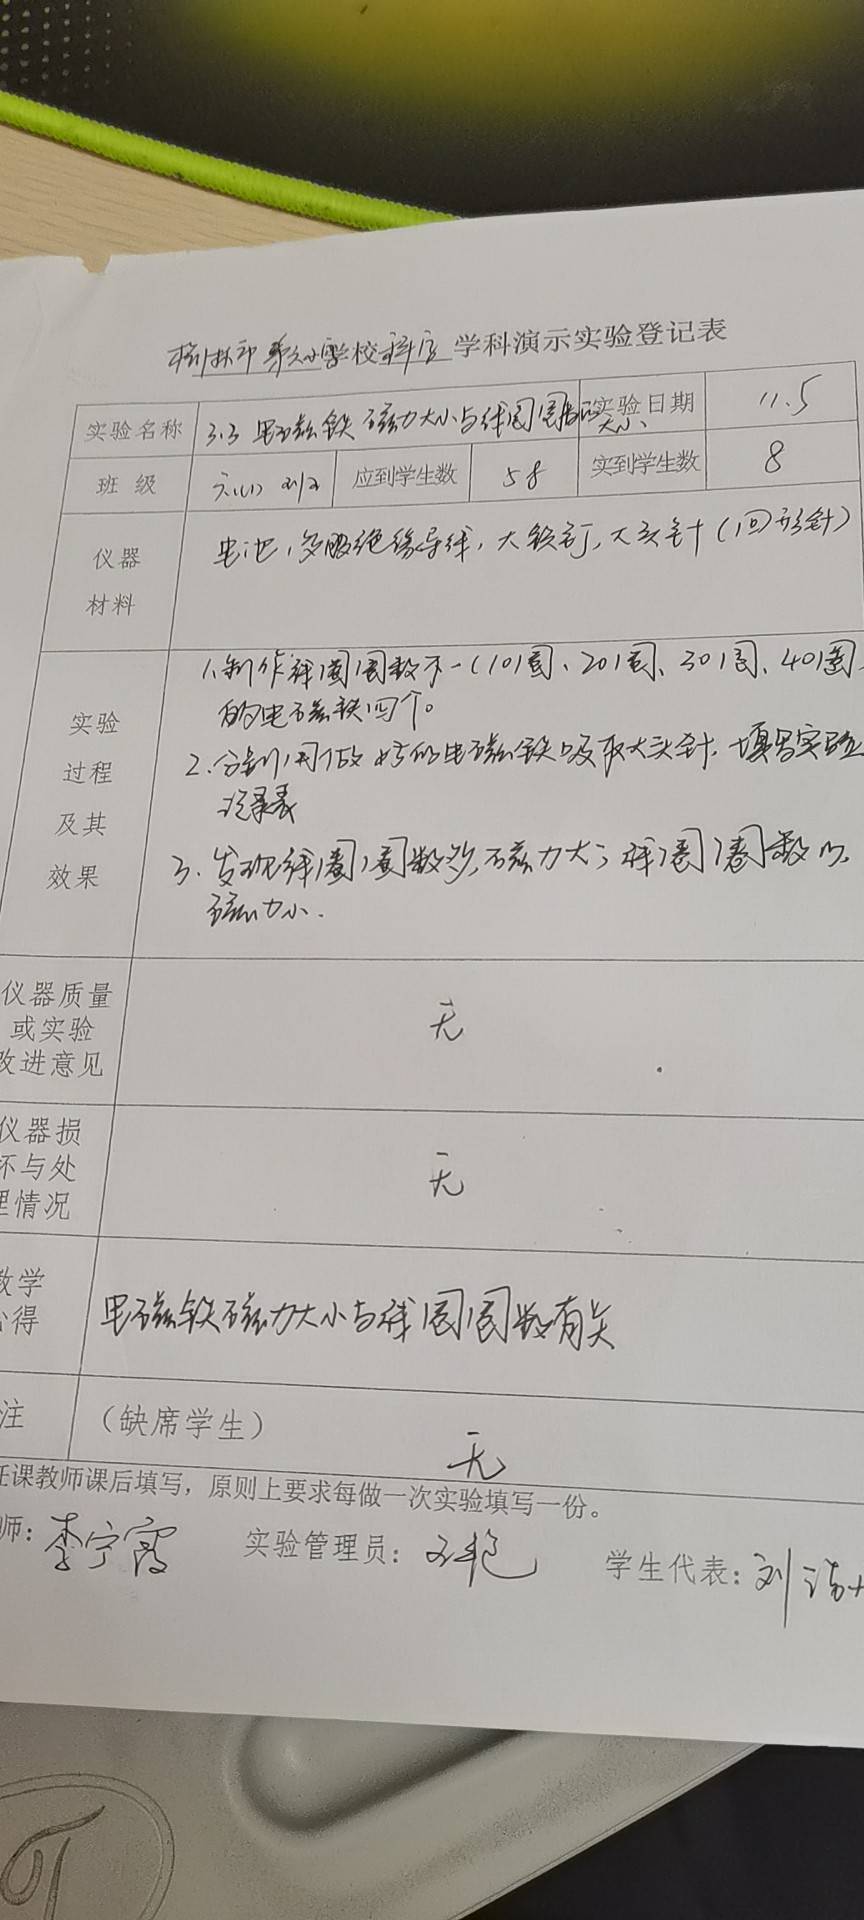 榆林市第九小学校科学 学科演示实验登记表
实验名称 3.3 电磁铁磁力大小与线圈圈数 大小 实验日期 11.5
班 级 六(1)班 应到学生数 58 实到学生数 8
仪器 电池，多股绝缘导线，大铁钉，大头针（回形针）
材料
实验
过程
及其
效果
1.制作线圈圈数不一（10圈、20圈、30圈、40圈
的电磁铁四个。
2.分别用做好的电磁铁吸取大头针，填写实验
记录表
3.发现线圈圈数多，磁力大；线圈圈数少，
磁力小.
仪器质量
或实验
改进意见
无
仪器损
坏与处
理情况
无
教学
心得
电磁铁磁力大小与线圈圈数有关
注 （缺席学生）
无
任课教师课后填写，原则上要求每做一次实验填写一份。
师：李宁霞 实验管理员： 学生代表：刘